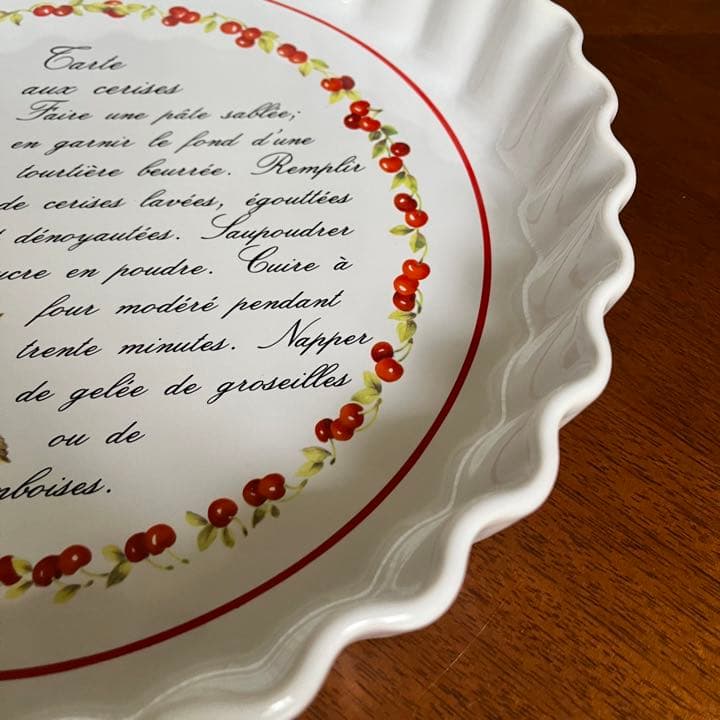 Tarte
aux cerises
Faire une pâte sablée;
en garnir le fond d'une
tourtière beurrée. Remplir
de cerises lavées, égouttées
dénoyautées. Saupoudrer
ucre en poudre. Cuire à
four modéré pendant
trente minutes. Napper
de gelée de groseilles
ou de
mboises.